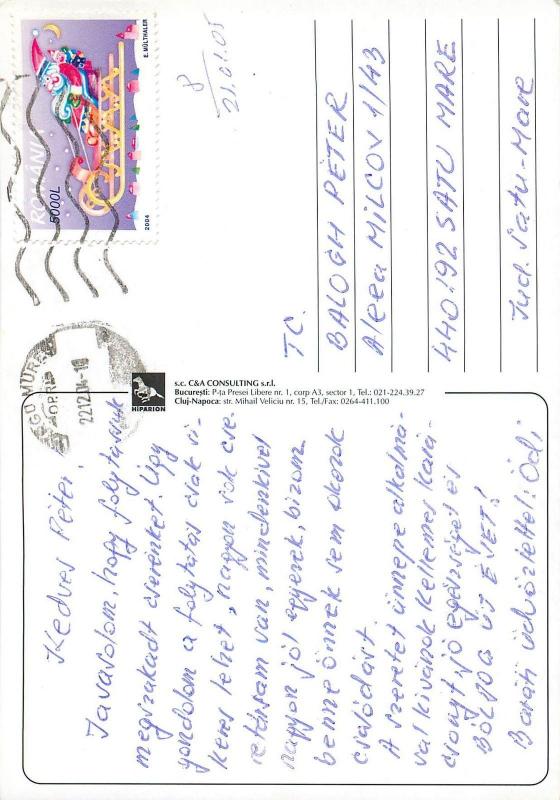 E. MÜLTHALER
ROMANIA
5000L
2004
22.12.04-10
8
21.01.05
TC.
BALOGH PÉTER
Aleea MILCOV 1/43
440192 SATU MARE
Jud. Satu-Mare
HIPARION
s.c. C&A CONSULTING s.r.l.
Bucureşti: P-ţa Presei Libere nr. 1, corp A3, sector 1, Tel.: 021-224.39.27
Cluj-Napoca: str. Mihail Veliciu nr. 15, Tel./Fax: 0264-411.100
Kedves Péter!
Javasolom, hogy folytassuk
megszakadt cserénket. Úgy
gondolom a folytatás csak si-
keres lehet, nagyon sok cse-
retársam van, mindenkivel
nagyon jól egyezek, bízom
benne önnek sem okozok
csalódást.
A szeretet ünnepe alkalmá-
val kívánok Kellemes kará-
csonyt, jó egészséget és
BOLDOG ÚJ ÉVET!
Baráti üdvözlettel: Ödi